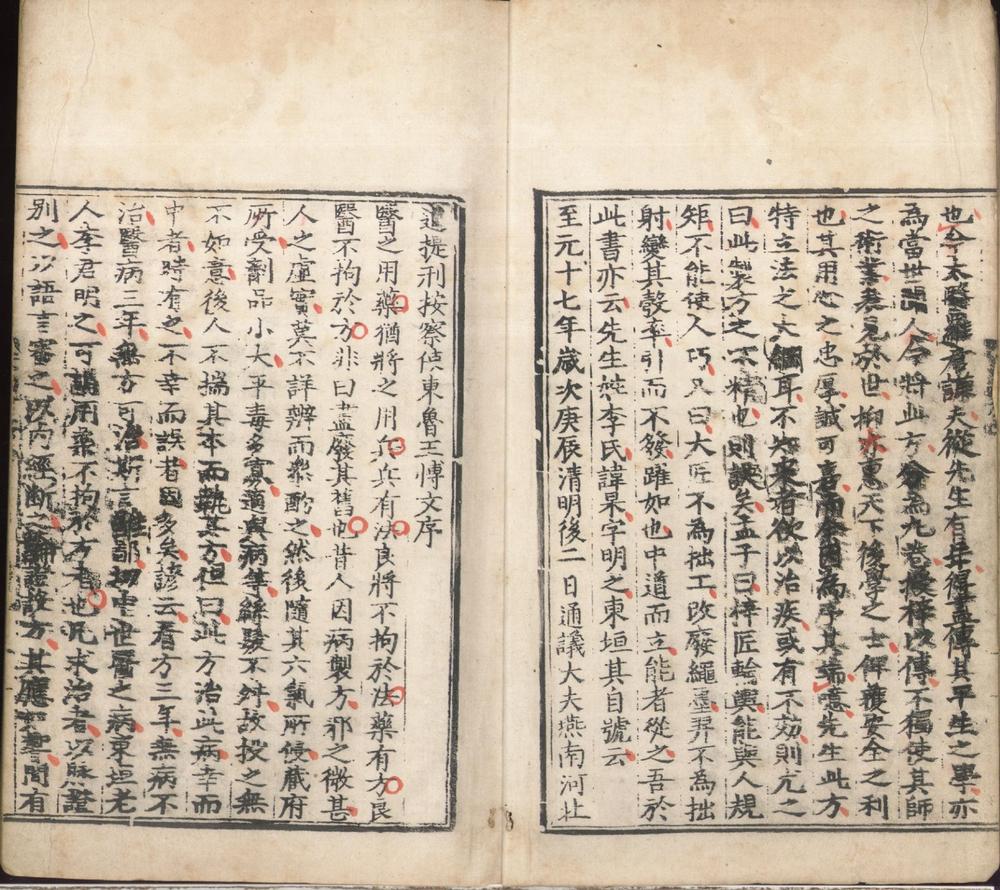 也今太醫羅君謙夫從先生有年得盡傳其平生之學亦
為當世聞人今將此方分為九卷板梓以傳不獨使其師
之術業表見於世抑亦惠天下後學之士俾獲安全之利
也其用心之忠厚誠可嘉尚余因為序其端意先生此方
特立法之大綱耳不知來者欲以治疾或有不効則尤之
曰此製方之不精也則誤矣孟子曰梓匠輪輿能與人規
矩不能使人巧又曰大匠不為拙工改廢繩墨羿不為拙
射變其彀率引而不發躍如也中道而立能者從之吾於
此書亦云先生姓李氏諱杲字明之東垣其自號云
至元十七年歲次庚辰清明後二日通議大夫燕南河北
道提刑按察使東魯王博文序
醫之用藥猶將之用兵兵有法良將不拘於法藥有方良
醫不拘於方非曰盡廢其舊也昔人因病製方邪之微甚
人之虛實莫不詳辨而參酌之然後隨其六氣所侵臟府
所受劑品小大平毒多寡適與病等絲髮不舛故投之無
不如意後人不揣其本而執其方但曰此方治此病幸而
中者時有之不幸而誤者固多矣諺云看方三年無病不
治醫病三年無方可治斯言雖鄙切中世醫之病東垣老
人李君明之可謂用藥不拘於方者也凡求治者以脉證
別之以語言審之以內經斷之論證設方其應如響間有